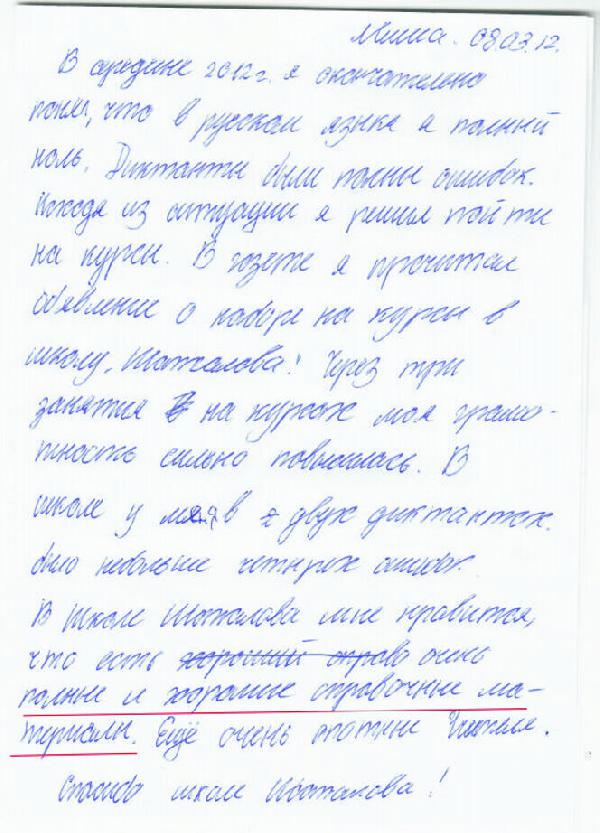 Миша. 08.03.12.
В середине 2012 г. я окончательно
понял, что в русском языке я полный
ноль. Диктанты были полны ошибок.
Исходя из ситуации я решил пойти
на курсы. В газете я прочитал
объявление о наборе на курсы в
школу „Шаталова". Через три
занятия на курсах моя грамо-
тность сильно повысилась. В
школе у меня в 2 двух диктантах.
было небольше четырёх ошибок.
В школе Шаталова мне нравится,
что есть хороший справо очень
полные и хорошие справочные ма-
териалы. Ещё очень опытные Учителя.
Спасибо школе Шаталова!